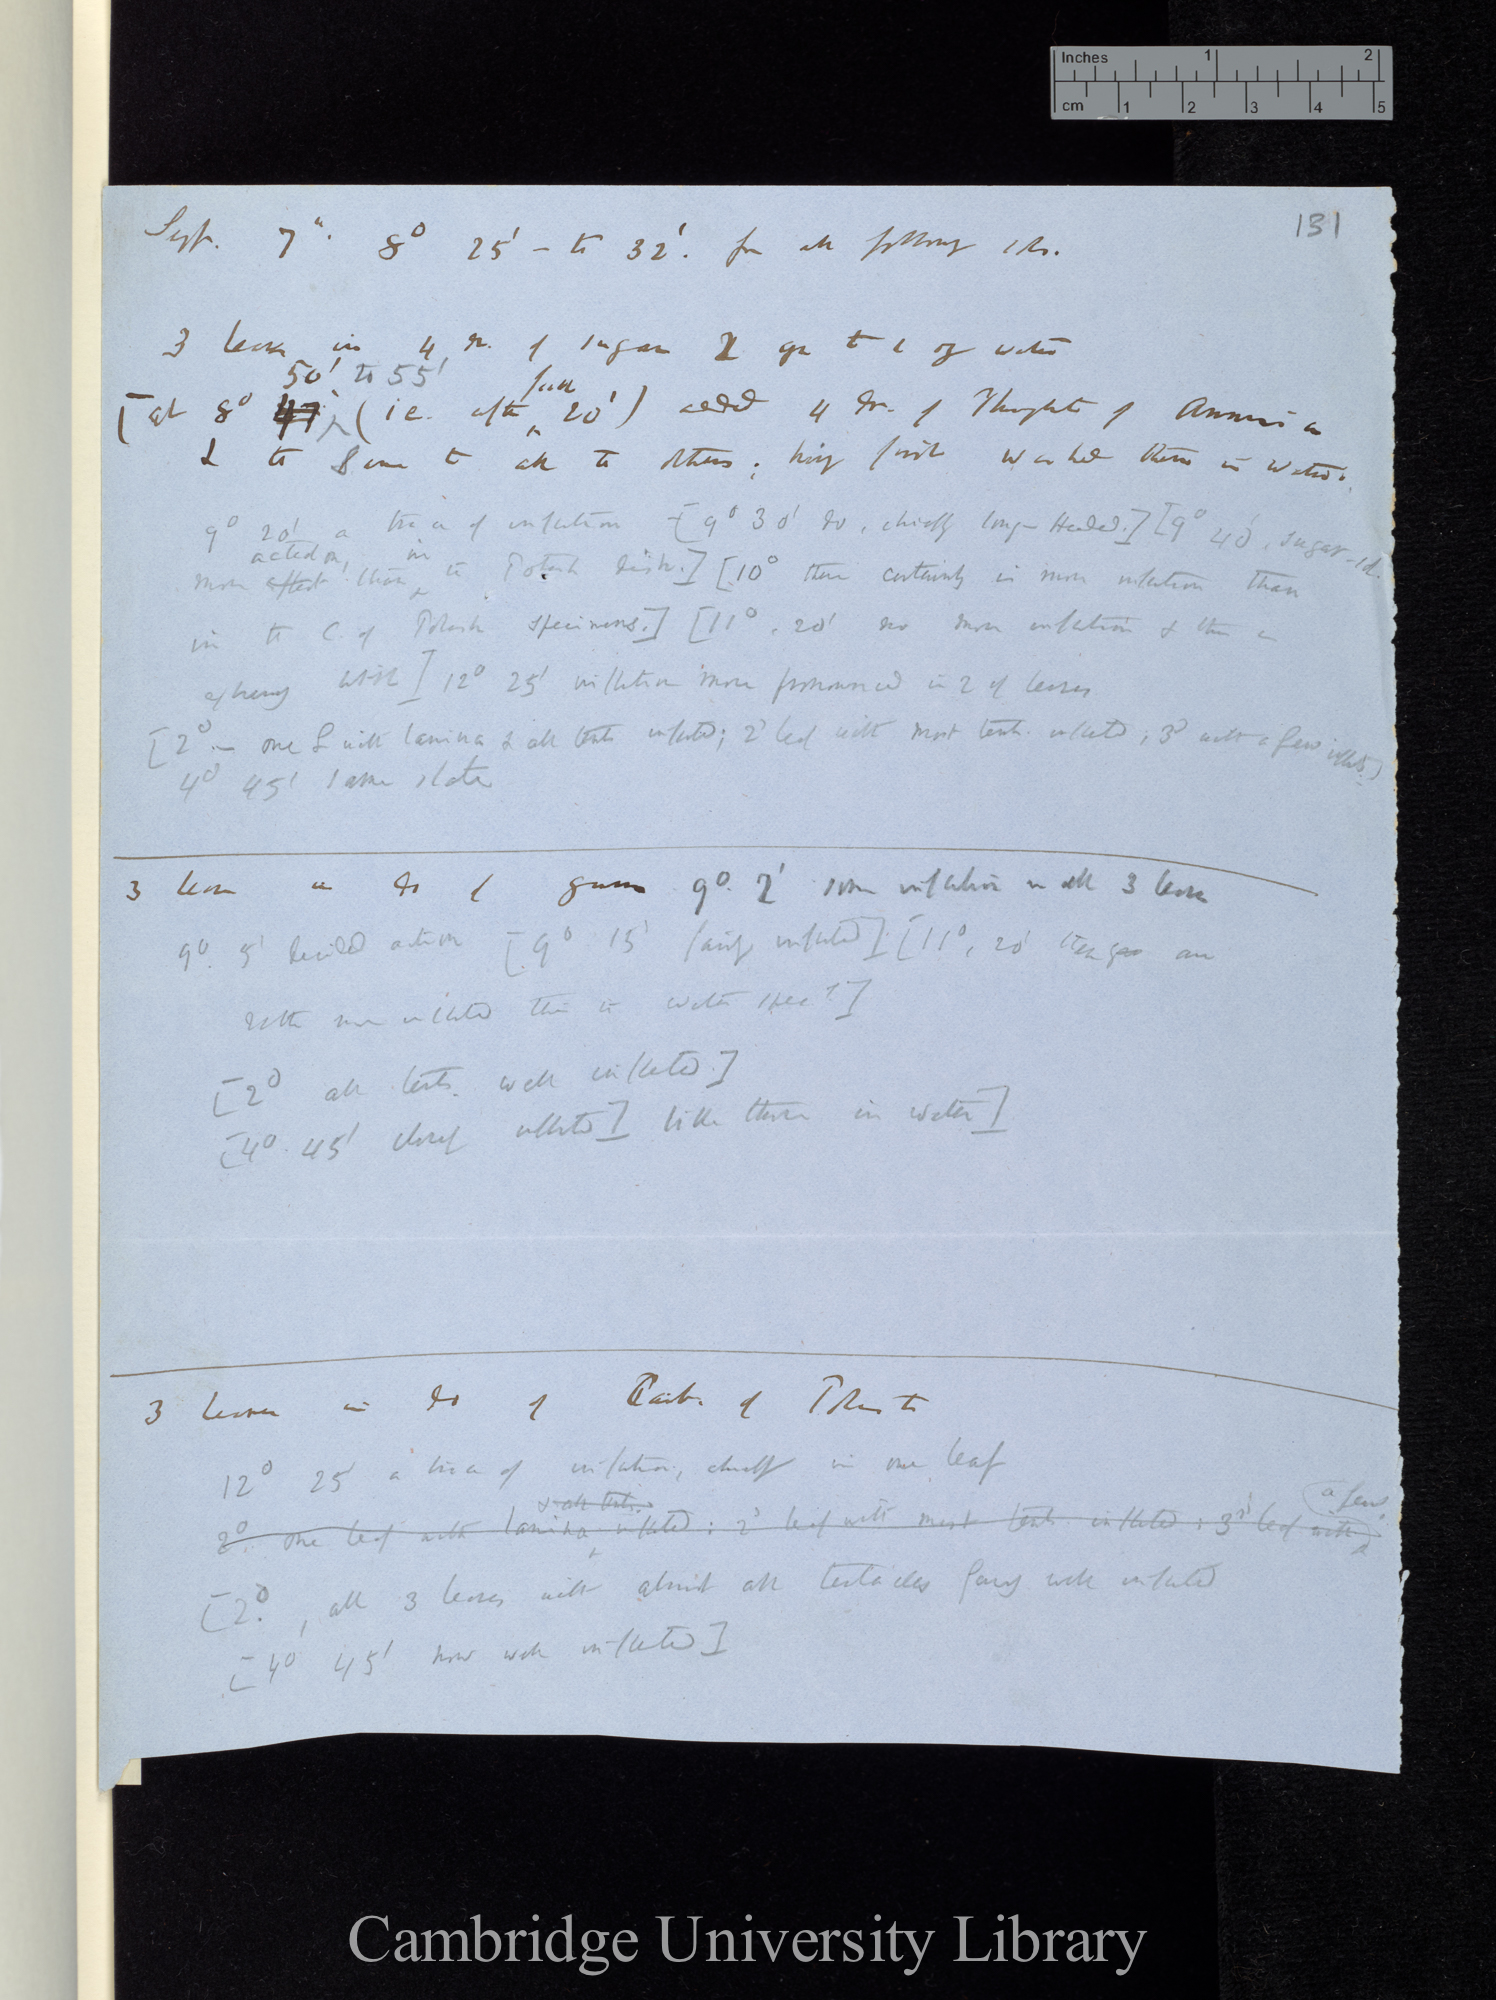 Inches 1 2
cm 1 2 3 4 5
131
Sept. 7th. 8° 25' – to 32'. for all following
3 leaves in 4 dr. of sugar 2 gr to 1 oz water
50' to 55'
[at 8° 47 (i.e. after full 20') added 4 dr. of Phosphate of Ammonia
& the same to all the others; having first washed them in water.
9° 20' a trace of inflection [9° 30' do, chiefly long-headed.] [9° 40', sugar
acted on in
more affect than the Potash dish.] [10° there certainly is more inflection than
in the C. of Potash specimens.] [11°, 20' no more inflection &
] 12° 25' inflection more pronounced in 2 of leaves
[2° – one L with lamina & all tents inflected; 2d leaf with most tent. inflected; 3d with a few inflect.]
4° 45' same state
3 leaves in do of gum 9° 2' some inflection in all 3 leaves
9° 5' decided action [9° 15' fairly inflected] [11°, 20'
rather more inflected than in water spec]
[2° all tents. well inflected.]
[4° 45' closely inflected] like those in water]
3 leaves in do of Carb. of Potash
12° 25' a trace of inflection, chiefly in one leaf
& all tents. a few
2° one leaf with lamina inflected; 2d leaf with most tent. inflected; 3d leaf with
[2°, all 3 leaves with almost all tentacles fairly well inflected
[4° 45' now well inflected]
Cambridge University Library